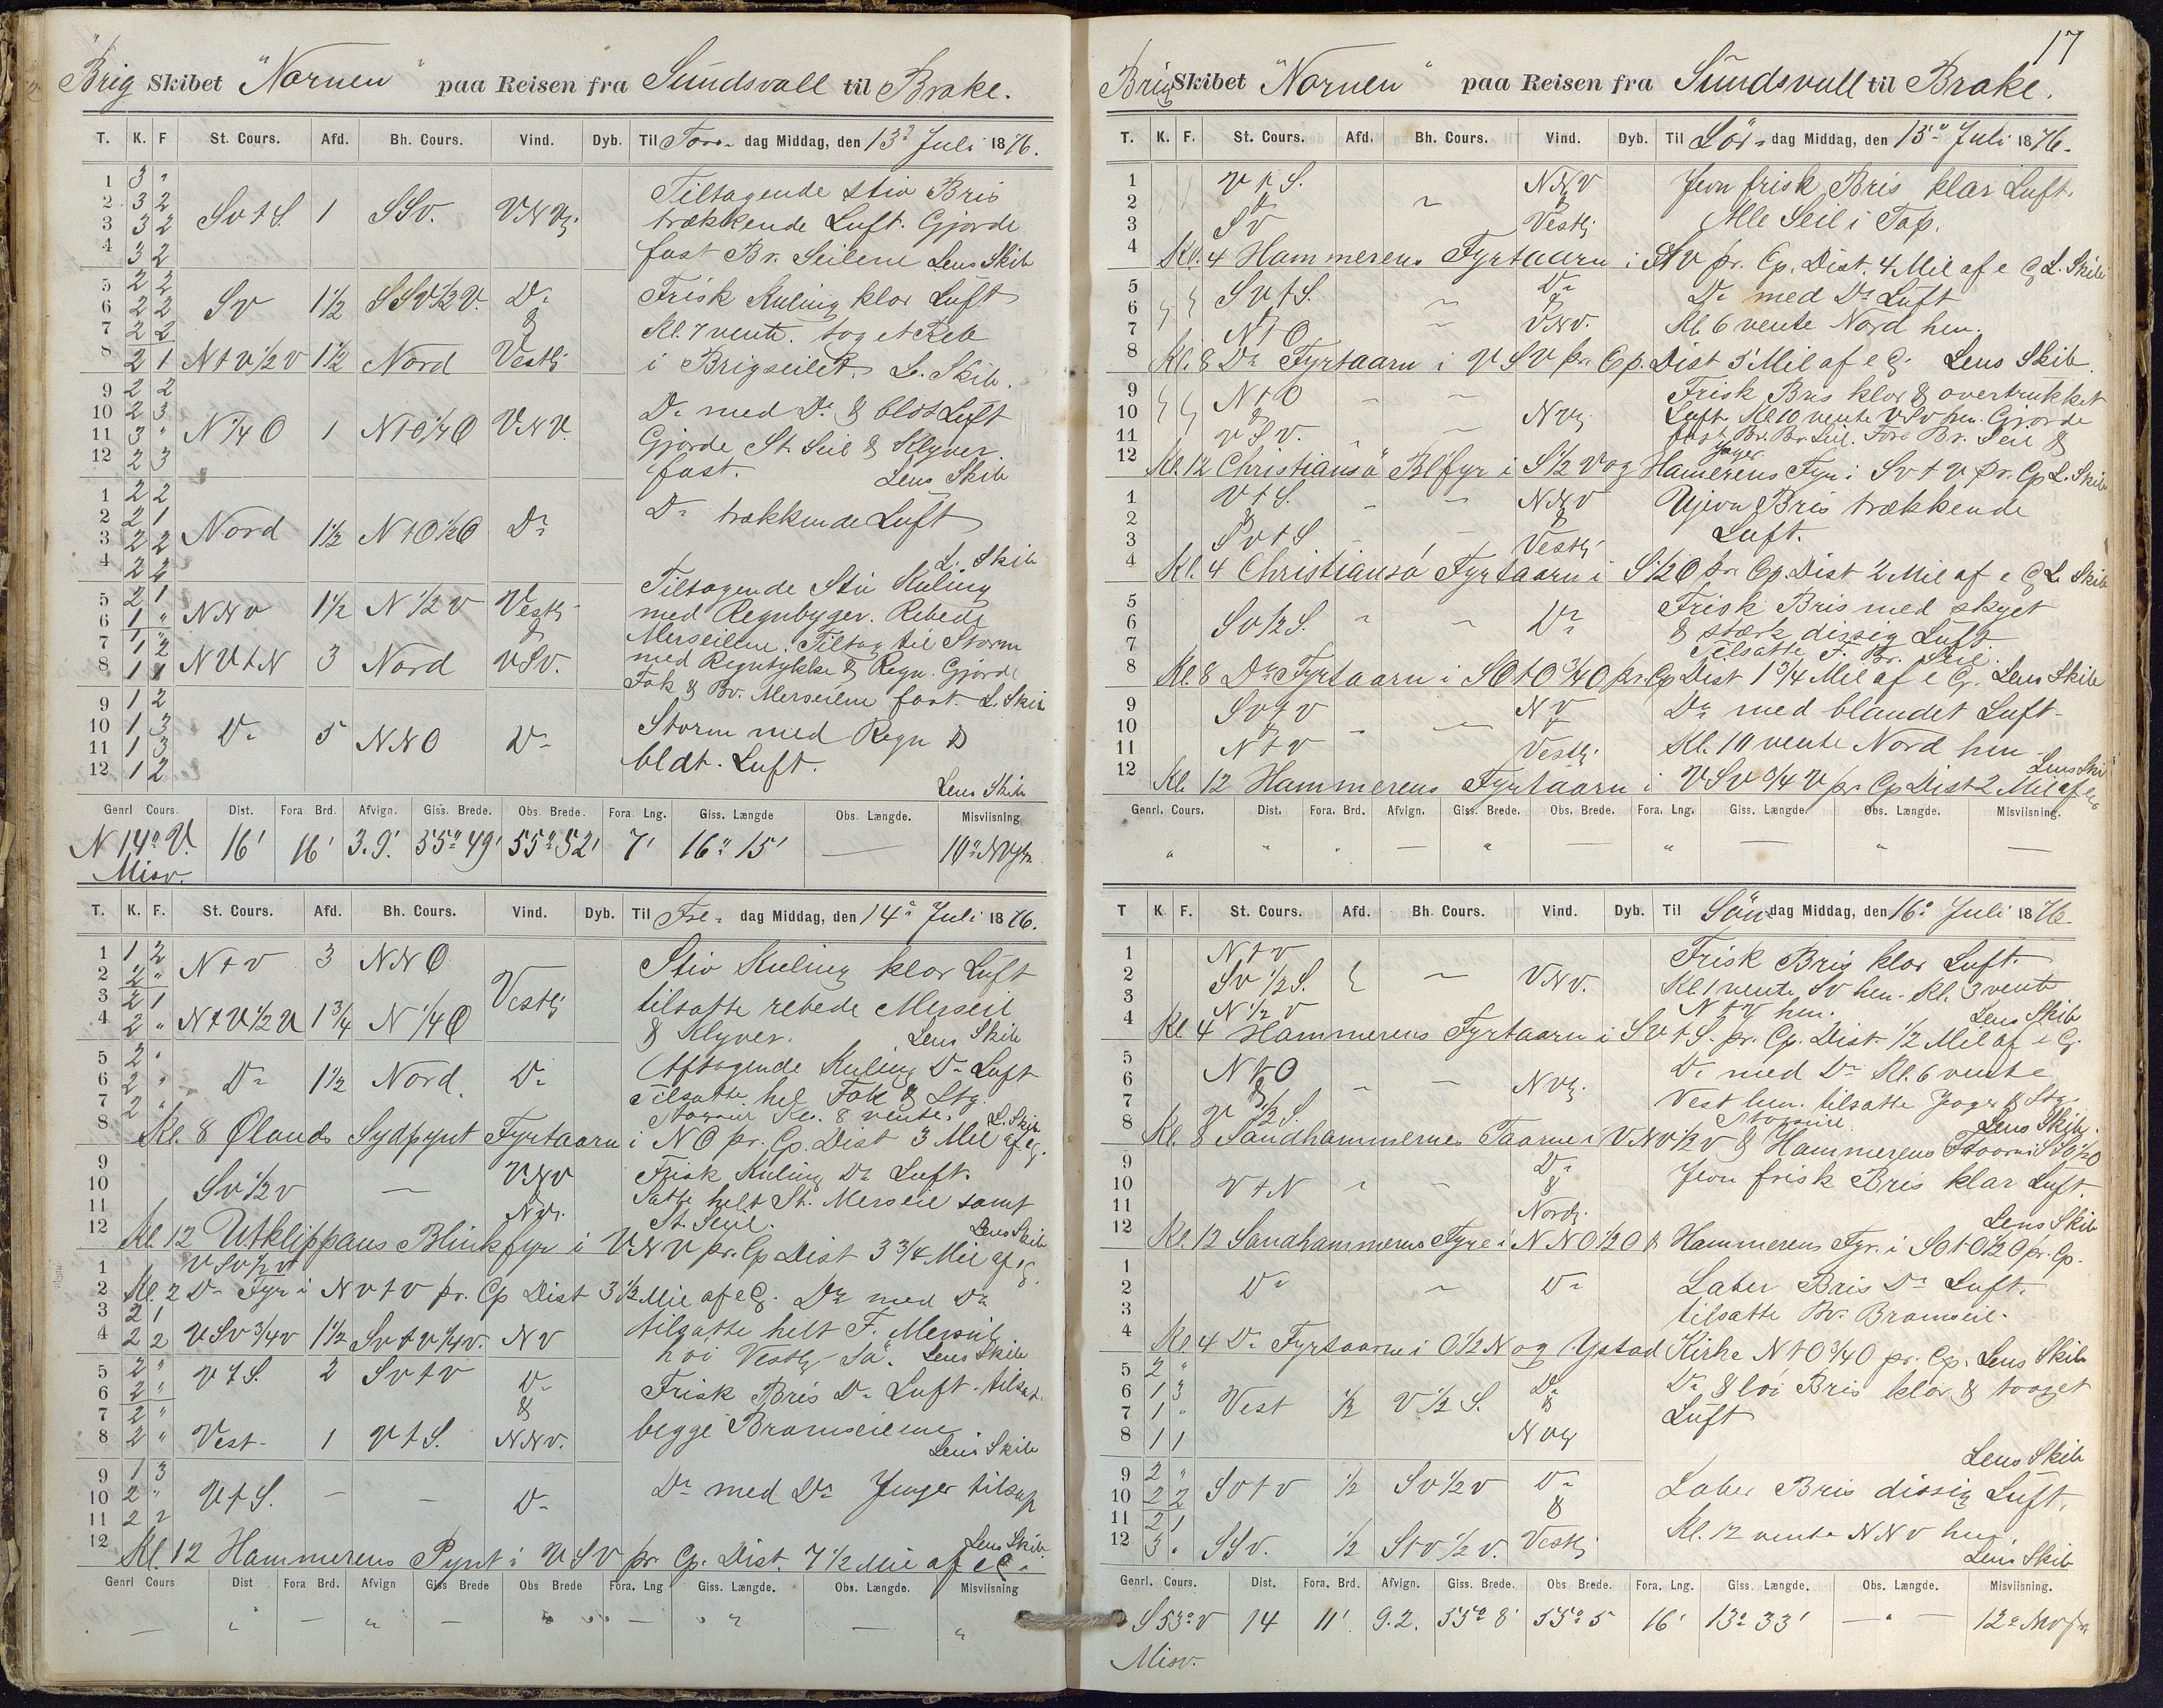 Brig Skibet "Nornen" paa Reisen fra Sundsvall til Brake.
T. K. F St. Cours. Afd. Bh. Cours. Vind. Dyb. Til Tors- dag Middag, den 13de Juli 1876.
1 3 "
2 3 2
3 3 2
4 3 2
SvtS. 1 SSv. VNVlj.
Tiltagende stiv Bris
trækkende Luft. Gjorde
fast Br. Seilene Lens Skib
5 2 2
6 2 2
7 2 2
8 2 1
Sv 1½ SSV½V. Do
&
NtV½V 1½ Nord Vestlj
Frisk Kuling klar Luft
Kl. 7 vente. tog et Reb
i Brigseilet. L. Skib.
9 2 2
10 2 3
11 3 "
12 2 3
N¼O 1 NtO¼O VNV.
Do med Do & bldt Luft
Gjorde St. Seil & Klyver
fast. Lens Skib
1 2 2
2 2 1
3 2 2
4 2 2
Nord 1½ NtO½O Do
Do trækkende Luft
L. Skib
5 2 1
6 1 "
7 1 2
8 1 1
NNV 1½ N½V Vestlj
&
NVtN 3 Nord VSV.
Tiltagende Stiv Kuling
med Regnbyger. Rebede
Merseilene. Tiltog til Storm
med Regntykke & Regn. Gjorde
Fok & Br. Merseilene fast. L. Skib
9 1 2
10 1 3
11 1 3
12 1 2
Do 5 NNO Do
Storm med Regn &
bldt. Luft.
Lens Skib
Genrl Cours. Dist. Fora Brd. Afvign. Giss. Brede. Obs. Brede. Fora. Lng. Giss. Længde Obs. Længde. Misviisning
N 14° V. 16' 16' 3.9' 55° 49' 55° 52' 7' 16° 15' — 10° NV
Misv.
T. K. F. St. Cours. Afd. Bh. Cours. Vind. Dyb. Til Fre- dag Middag, den 14de Juli 1876.
1 1 2
2 2 "
3 2 1
4 2 "
NtV 3 NNO
Vestlj
NtV½V 1¾ N¼O
Stiv Kuling klar Luft
tilsatte rebede Merseil
& Klyver. Lens Skib
5 2 "
6 2 "
7 2 "
8
Do 1½ Nord. Do
Aftagende Kuling Do Luft
Tilsatte hel Fok & Stg.
Kl. 8 vente. L. Skib
Kl. 8 Ølands Sydpynt Fyrtaarn i NO pr. Cp. Dist 3 Mil af eg.
9
10
11
12
Sv½v — VNV
NVlj.
Frisk Kuling Do Luft.
Satte helt St. Merseil samt
St. Seil. Lens Skib
Kl. 12 Utklippans Blinkfyr i VNV pr. Cp Dist 3¾ Mil af eg.
1 VSV½V
2 Kl. 2 Do Fyr i NVtV pr. Cp Dist 3½ Mil af eg. Do med Do
3 2 1
4 2 2
VSV¾V 1½ SvtV¼V. NV
tilsatte helt F. Merseil
høi Vestlj Sö. Lens Skib
5 2 "
6 2 "
7 2 "
8 2 "
VtS. 2 SvtV Do
&
Vest 1 VtS. NNV.
Frisk Bris Do Luft. tilsat.
begge Bramseilene
Lens Skib
9 1 3
10 2 "
11 2 2
12
VtS. — — Do
Do med Do Jager tilsat
Lens Skib
Kl. 12 Hammerens Pynt i VSV pr. Cp. Dist. 7½ Mil af eg
Genrl Cours Dist Fora Brd. Afvign Giss Brede Obs Brede Fora. Lng Giss. Længde. Obs. Længde. Misviisning
17
Brig Skibet "Nornen" paa Reisen fra Sundsvall til Brake.
T. K. F. St. Cours. Afd. Bh. Cours. Vind. Dyb. Til Lör- dag Middag, den 15de Juli 1876.
1
2
3
4
VtS. NNV
& &
SV Vestlj
Jevn frisk Bris klar Luft.
Alle Seil i Top.
Kl. 4 Hammerens Fyrtaarn i StV pr. Cp. Dist. 4 Mil af eg L. Skib
5
6
7
8
SVtS. Do
&
NtO VNV.
Do med Do Luft
Kl. 6 vente Nord hen.
Kl. 8 Do Fyrtaarn i VSV pr. Cp. Dist 5 Mil af eg. Lens Skib.
9
10
11
12
NtO
&
VSV. NVlj.
Frisk Bris klar & overtrukket
Luft. Kl 10 vente VSV hen. Gjorde
fast Br. Br. Seil. Fore Br. Seil &
Jager
Kl. 12 Christiansö Blfyr i S½V og Hamerens Fyr i SvtV pr. Cp L. Skib
1
2
3
4
VtS. NNV
& &
SvtS Vestlj
Ujevn Bris trækkende
Luft.
Kl. 4 Christiansö Fyrtaarn i S½O pr Cp. Dist 2 Mil af eg L. Skib
5
6
7
8
Sv½S. Do
Frisk Bris med skyet
& stærk dissig Luft.
Tilsatte F. Br. Seil.
Kl. 8 Do Fyrtaarn i SOtO¾O pr. Cp Dist 1¾ Mil af eg. Lens Skib
9
10
11
12
SvtV NV
&
NtV Vestlj.
Do med blandet Luft
Kl. 10 vente Nord hen
Lens Skib
Kl. 12 Hammerens Fyrtaarn i VSV¾V pr. Cp Dist 2 Mil af eg
Genrl. Cours. Dist. Fora. Brd. Afvign. Giss. Brede. Obs. Brede. Fora. Lng. Giss. Længde. Obs. Længde. Misviisning.
T K. F. St. Cours. Afd. Bh. Cours. Vind. Dyb. Til Søn dag Middag, den 16de Juli 1876
1
2
3
4
NtV
Sv½S. VNV.
N½V
Frisk Bris klar Luft.
Kl. 1 vente SV hen. Kl. 3 vente
NtV hen. Lens Skib
Kl 4 Hammerens Fyrtaarn i SvtS. pr. Cp. Dist. ½ Mil af eg.
5
6
7
8
NtO
&
V½S. NVlj.
Do med Do Kl. 6 vente
Vest hen. tilsatte Jager & Stg.
Lens Skib.
Kl. 8 Sandhammernes Taarne i VNV½V & Hammerens Taarn i SSO½O
9
10
11
12
VtN Do
&
Nordlj.
Jevn frisk Bris klar Luft.
Lens Skib
Kl. 12 Sandhammerens Fyre i NNO½O & Hammerens Fyr. i SOtO½O pr. Cp.
1
2
3
4
Do — Do
Laber Bris Do Luft.
tilsatte Br. Bramseil.
Kl 4 Do Fyrtaarne i O½N og Ystad Kirke NtO¾O pr. Cp. Lens Skib
5 2 "
6 1 3
7 1 "
8 1 1
Vest ½ V½S. Do
&
NVlj
Do & löi Bris klar & taaget
Luft
Lens Skib
9 2 "
10 2 2
11 2 1
12 3 "
SvtV ½ Sv½V Do
&
SSV. ½ StV½V. Vestlj
Laber Bris dissig Luft.
Kl. 12 vente NNV hen
Lens Skib
Genrl. Cours. Dist. Fora. Brd. Afvign. Giss. Brede. Obs Brede. Fora. Lng. Giss. Længde. Obs. Længde. Misviisning.
S 53° V 14 11' 9.2. 55° 8' 55° 5 16' 13° 33' — " — 12° NV
Misv.